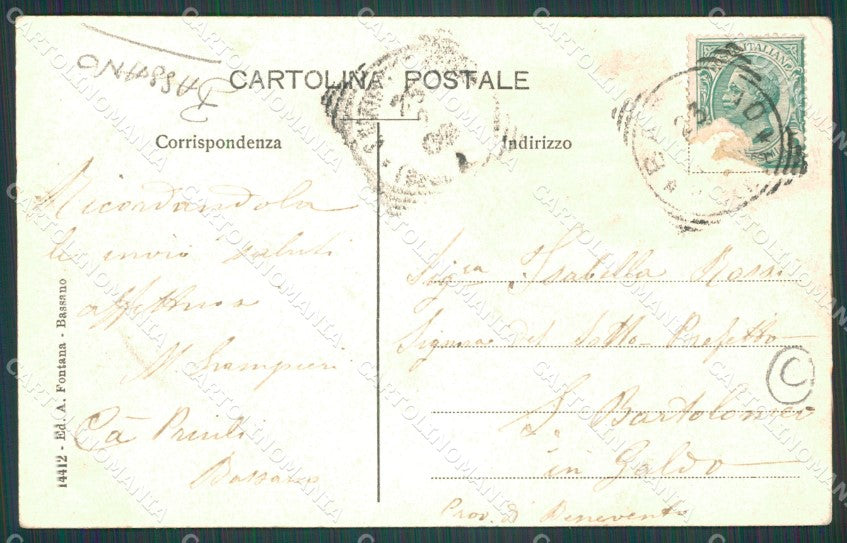 CARTOLINA POSTALE
Corrispondenza
Indirizzo
ITALIANE
BA
Ricordandola
le invio saluti
affettuosi
M
Cà Priuli
Bassano
Sig.ra Isabella Rossi
Signora del Sotto Prefetto
S. Bartolomeo
in Galdo
Prov. di Benevento
C
14412 - Ed. A. Fontana - Bassano
CARTOLINOMANIA